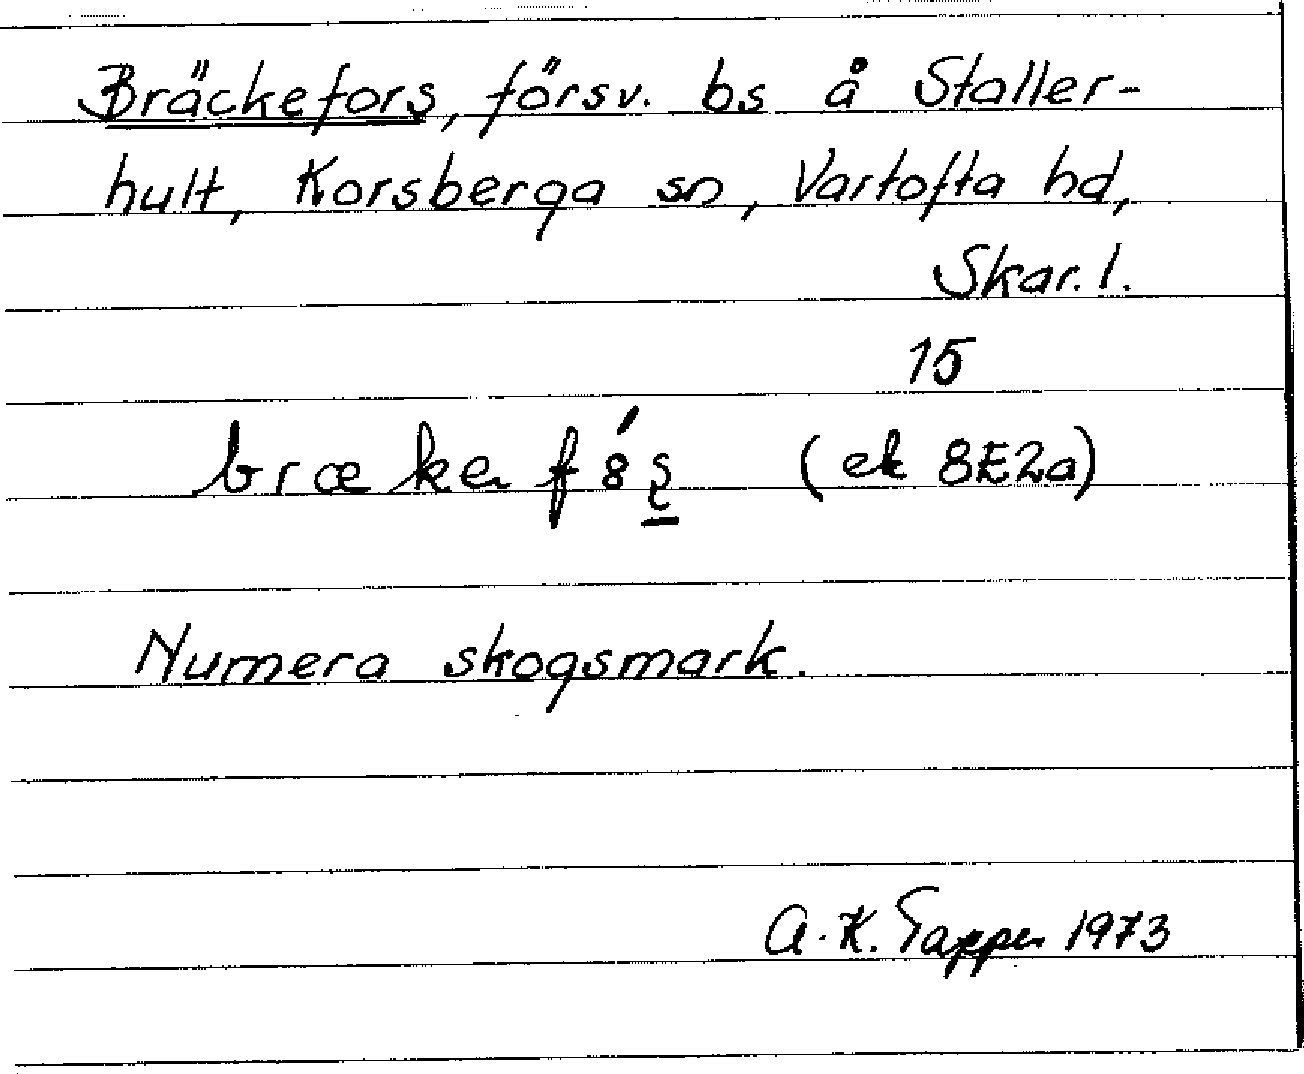 Bräckefors, försv. bs å Staller-
hult, Korsberga sn, Vartofta hd,
Skar. l.
15
(ek 8E2a)
Numera skogsmark.
A.K. Tapper 1973